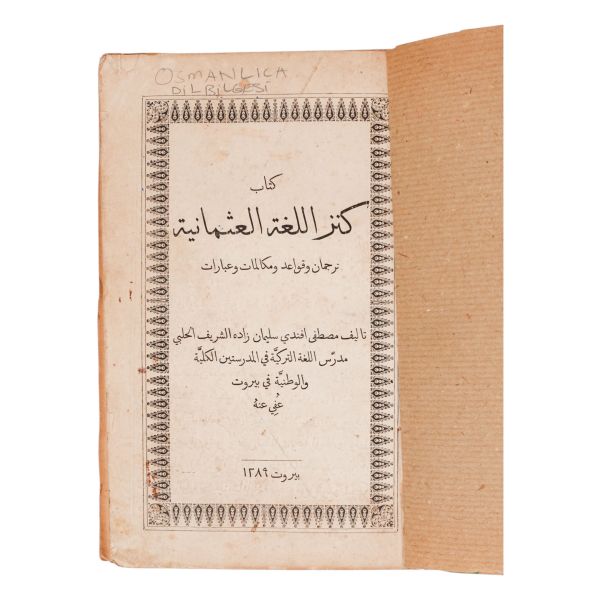 OSMANLICA
DİLBİLGESİ
كتاب
كنز اللغة العثمانية
ترجمان وقواعد ومكالمات وعبارات
تاليف مصطفى افندي سليمان زاده الشريف الحلبي
مدرّس اللغة التركيَّة في المدرستين الكليَّة
والوطنيَّة في بيروت
عُفي عنهُ
بيروت ١٢٨٩